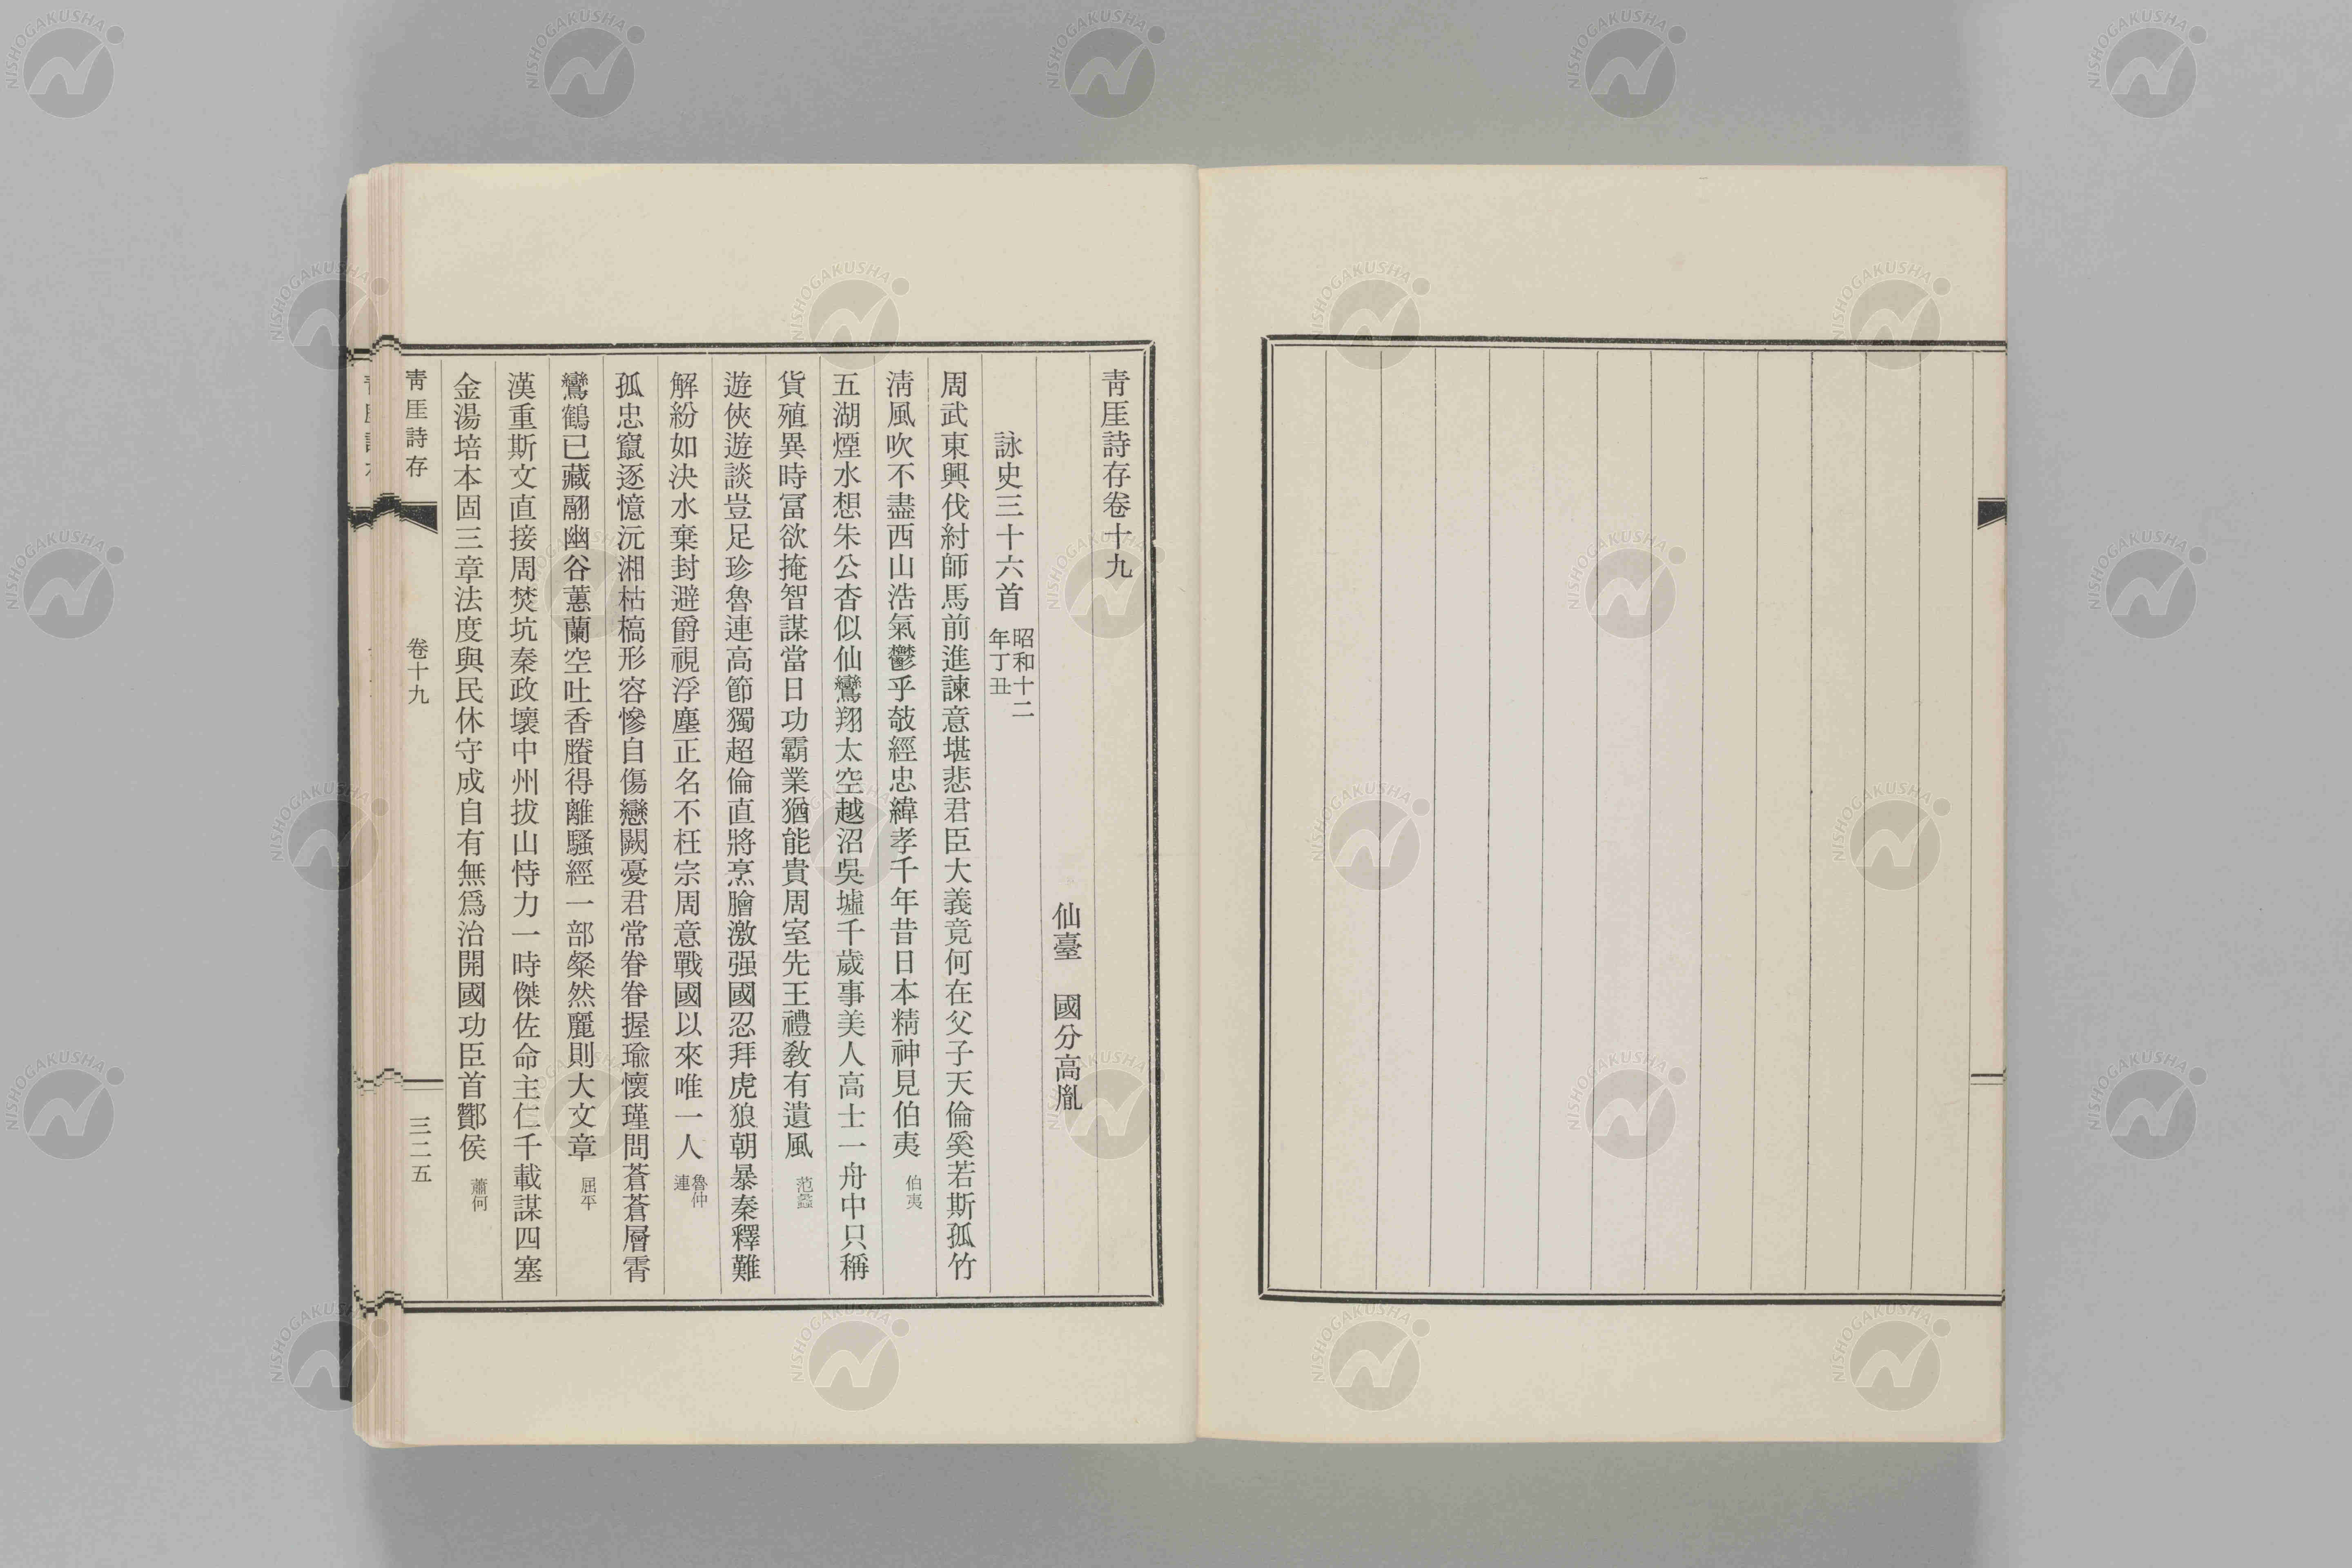 靑厓詩存卷十九
仙臺　國分高胤
詠史三十六首 昭和十二年丁丑
周武東興伐紂師馬前進諫意堪悲君臣大義竟何在父子天倫奚若斯孤竹
淸風吹不盡西山浩氣鬱乎攲經忠緯孝千年昔日本精神見伯夷 伯夷
五湖煙水想朱公杳似仙鸞翔太空越沼吳墟千歲事美人高士一舟中只稱
貨殖異時富欲掩智謀當日功霸業猶能貴周室先王禮敎有遺風 范蠡
遊俠遊談豈足珍魯連高節獨超倫直將烹膾激强國忍拜虎狼朝暴秦釋難
解紛如決水棄封避爵視浮塵正名不枉宗周意戰國以來唯一人 魯仲連
孤忠竄逐憶沅湘枯槁形容慘自傷戀闕憂君常眷眷握瑜懷瑾問蒼蒼層霄
鸞鶴已藏翮幽谷蕙蘭空吐香賸得離騷經一部粲然麗則大文章 屈平
漢重斯文直接周焚坑秦政壞中州拔山恃力一時傑佐命主仁千載謀四塞
金湯培本固三章法度與民休守成自有無爲治開國功臣首酇侯 蕭何
靑厓詩存
卷十九
三二五
NISHOGAKUSHA